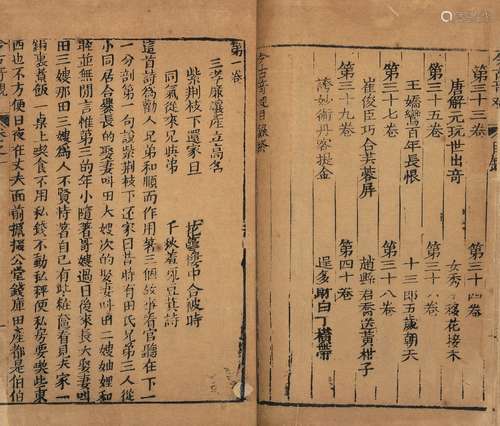 第三十三卷 第三十四卷
唐解元玩世出奇 女秀才移花接木
第三十五卷 第三十六卷
王嬌鸞百年長恨 十三郎五歲朝天
第三十七卷 第三十八卷
崔俊臣巧合芙蓉屏 趙縣君喬送黃柑子
第三十九卷 第四十卷
誇妙術丹客提金 逞多財白丁橫帶
今古奇觀目錄終
第一卷
三孝廉讓產立高名
紫荊枝下還家日 花萼樓中合被時
同氣從來兄與弟 千秋羞詠豆萁詩
這首詩為勸人兄弟和順而作用著三個故事看官聽在下一
一分剖第一句說紫荊枝下還家日昔時有田氏兄弟三人從
小同居合爨長的娶妻叫田大嫂次的娶妻叫田二嫂妯娌和
睦並無閒言惟第三的年小隨著哥嫂過日後來長大娶妻叫
田三嫂那田三嫂為人不賢恃著自己有些粧奩看見夫家一
鍋裏煮飯一桌上喫食不用私錢不動私秤便私房要喫些東
西也不方便日夜在丈夫面前攛掇公堂錢庫田產都是伯伯
今古奇觀